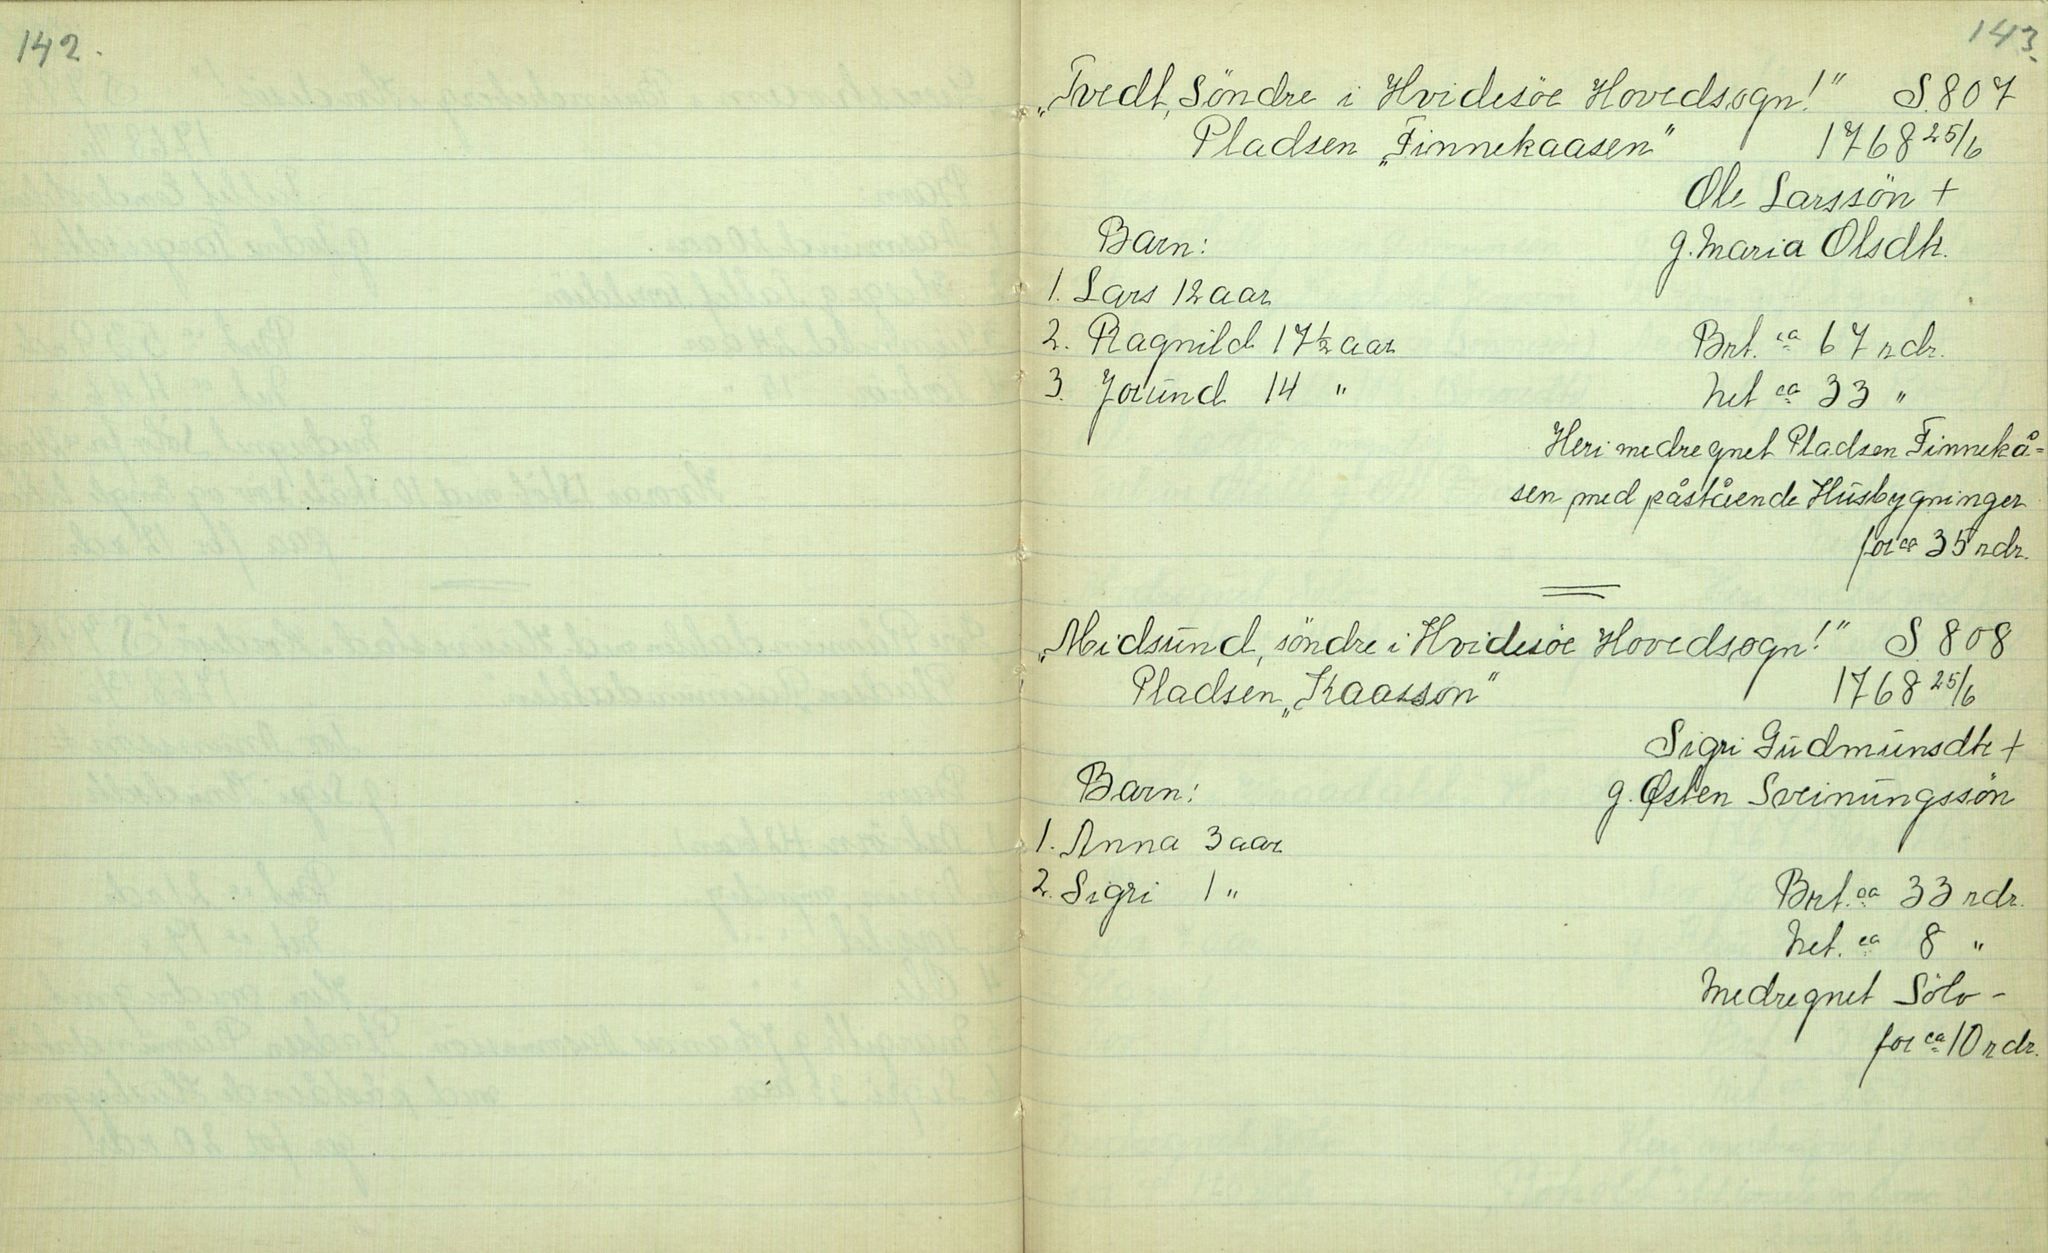 142.
143.
„Tvedt, Söndre i Hvidesöe Hovedsogn!" S. 807
Pladsen „Finnekaasen" 1768 25/6
Ole Larssön +
Barn: g. Maria Olsdtr.
1. Lars 12 aar
2. Ragnild 17½ aar Brt. ca 67 rdr.
3. Jorund 14 " Net ca 33 "
Heri medregnet Pladsen Finnekå=
sen med påstående Husbygninger
for ca 35 rdr.
„Midsund, söndre i Hvidesöe Hovedsogn!" S 808
Pladsen „Kaasson" 1768 25/6
Sigri Gudmunsdtr +
Barn: g. Østen Sveinungssön
1. Anna 3 aar
2. Sigri 1 " Brt. ca 33 rdr.
Net. ca 8 "
Medregnet Sölv -
for ca 10 rdr.